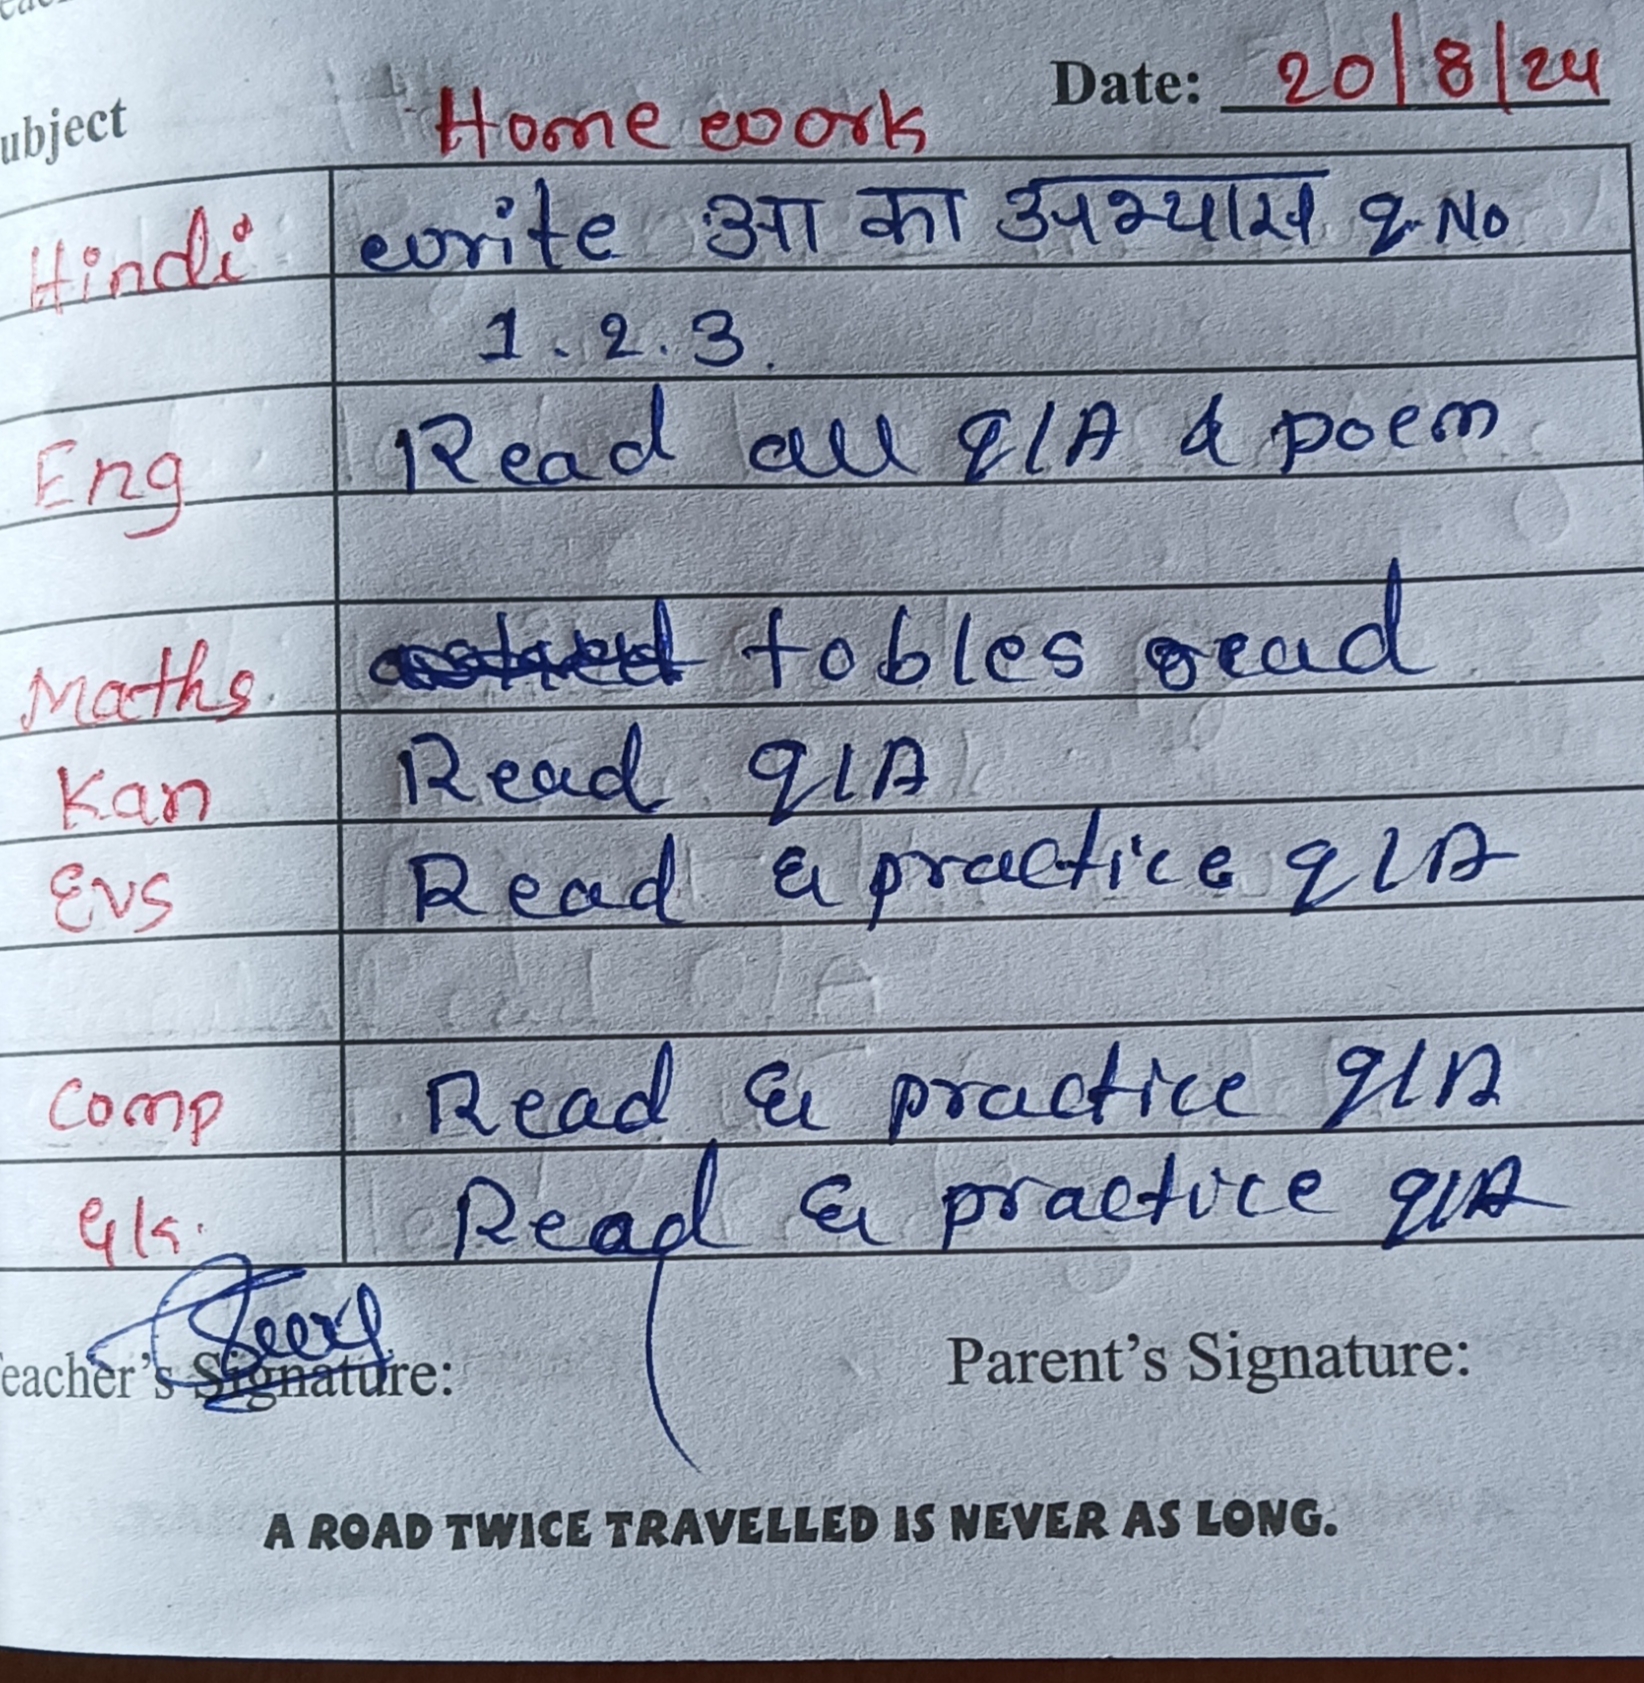 Date: 20/8/24
ubject Home work
Hindi write आ का अभ्यास q. No
1. 2. 3.
Eng Read all q/A & poem
Maths tobles read
Kan Read q/A
Evs Read & practice q/A
Comp Read & practice q/A
G/k. Read & practice q/A
eacher's Signature: Parent's Signature:
A ROAD TWICE TRAVELLED IS NEVER AS LONG.